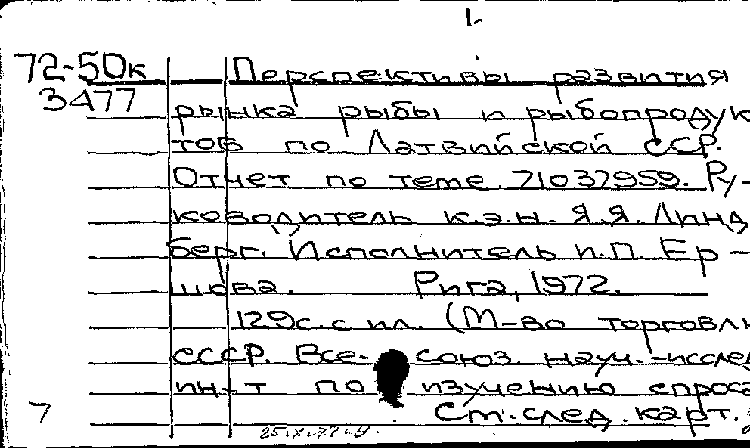 1.
72-50к Перспективы развития
3477 рынка рыбы и рыбопродук-
тов по Латвийской ССР.
Отчет по теме 71037959. Ру-
ководитель к.э.н. Я.Я. Линд
берг. Исполнитель И.П. Ер-
шова. Рига, 1972.
129с. с ил. (М-во торговли
СССР. Все- союз. науч.-исслед
ин-т по изучению спроса
7 См. след. карт.